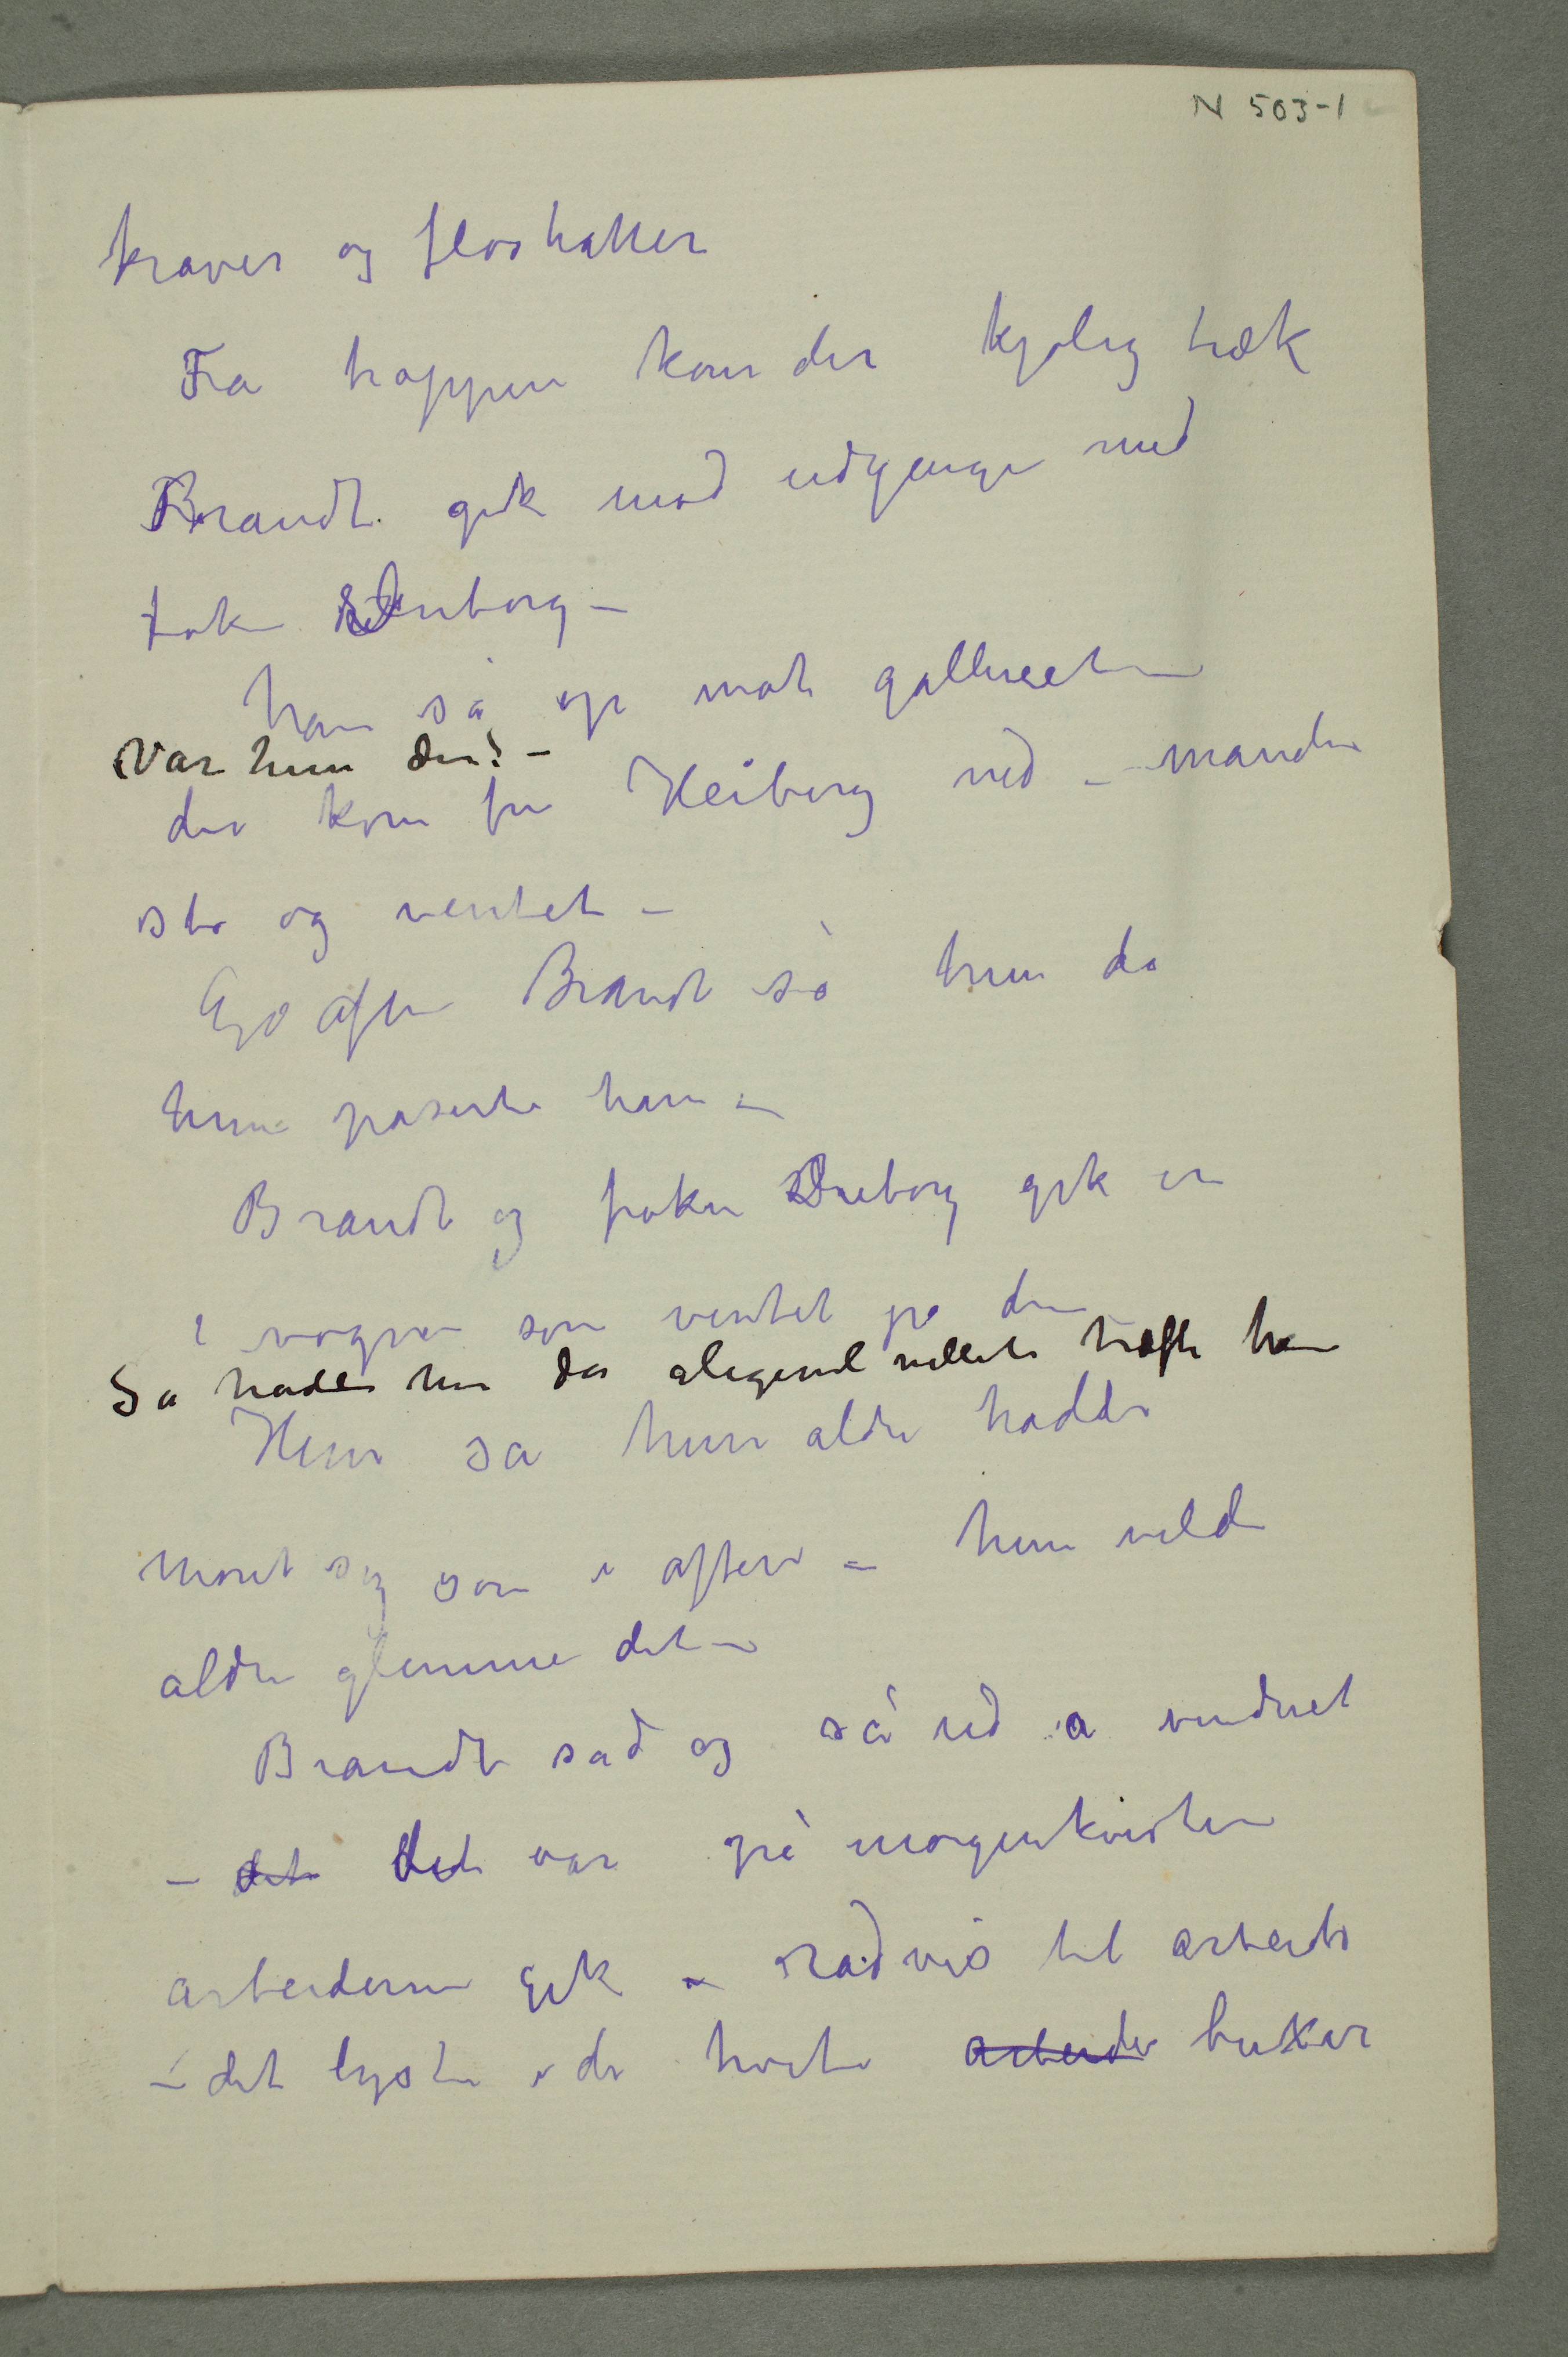 N 503-1
kraver og floshatter
Fra trappen kom der kjølig træk
Brandt gik mod udgange med
frøk Dueborg –
han så op mot galleriet
Var hun der? –
der kom fru Heiberg ned – manden
sto og ventet –
Go aften Brandt sa hun da
hun paserte ham –
Brandt og frøken Dueborg gik in
i vognen som ventet på dem
Så hadde hun da aligevel villet træffe ham
Hun sa hun aldri hadde
moret sig som i aften – hun vilde
aldri glemme det –
Brandt sad og så ud a vinduet
– det det var på morgenkvisten
arbeiderne gik – radvis til arbeide
– det lyste i de hvite arbeider buxer